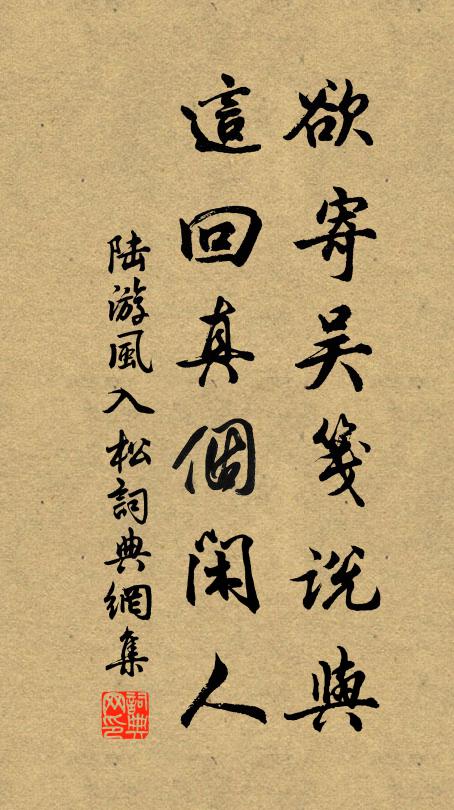 欲寄吴箋説與
這回真個閑人
陆游風入松詞典網集
詞典网印